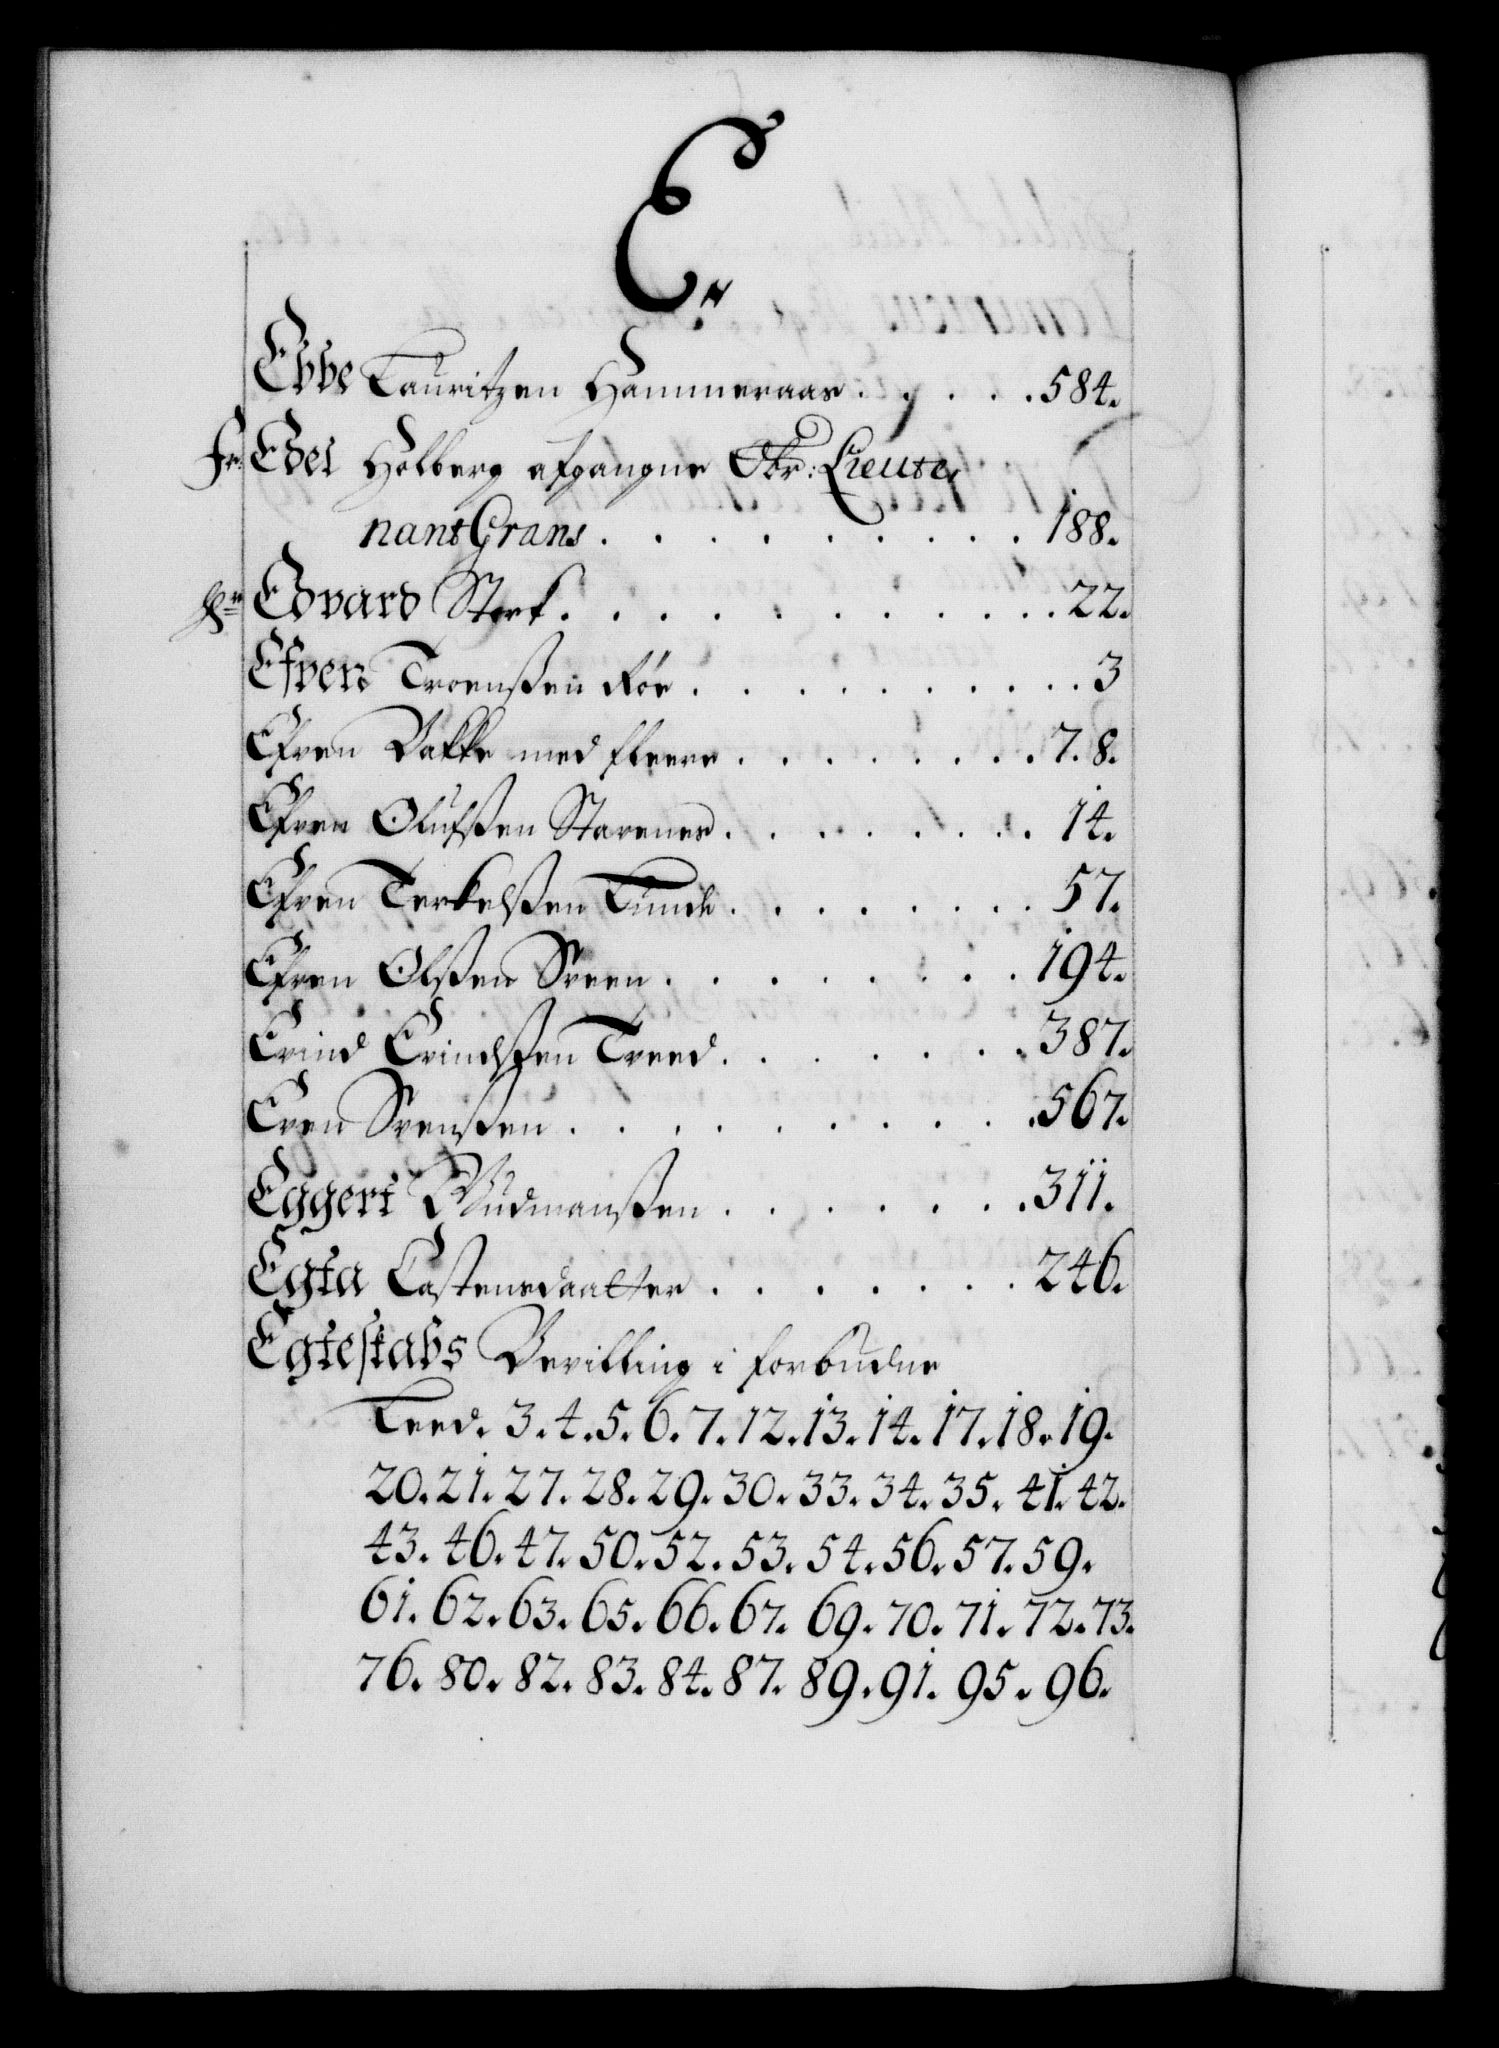 E.
Ebbe Lauritzen Hammeraas . . . . . 584.
Fr: Edel Holberg afgangne Obr: Lieute-
nant Grans . . . . . . . . . 188.
Hr Edvard Stork . . . . . . . . . . 22.
Efven Troenßen Röe . . . . . . . . 3
Efven Bakke med fleere . . . . . . . 7. 8.
Efven Olufßen Stavenes . . . . . . . 14.
Efven Terkelßen Lunde . . . . . . . 57.
Efven Olßen Sveen . . . . . . . . 194.
Evind Evindßen Tveed . . . . . . . 387.
Even Svenßen . . . . . . . . . 567.
Eggert Gudmanßen . . . . . . . 311.
Egta Castensdaatter . . . . . . . 246.
Egteskabs Bevilling i forbudne
Leed. 3. 4. 5. 6. 7. 12. 13. 14. 17. 18. 19.
20. 21. 27. 28. 29. 30. 33. 34. 35. 41. 42.
43. 46. 47. 50. 52. 53. 54. 56. 57. 59.
61. 62. 63. 65. 66. 67. 69. 70. 71. 72. 73.
76. 80. 82. 83. 84. 87. 89. 91. 95. 96.